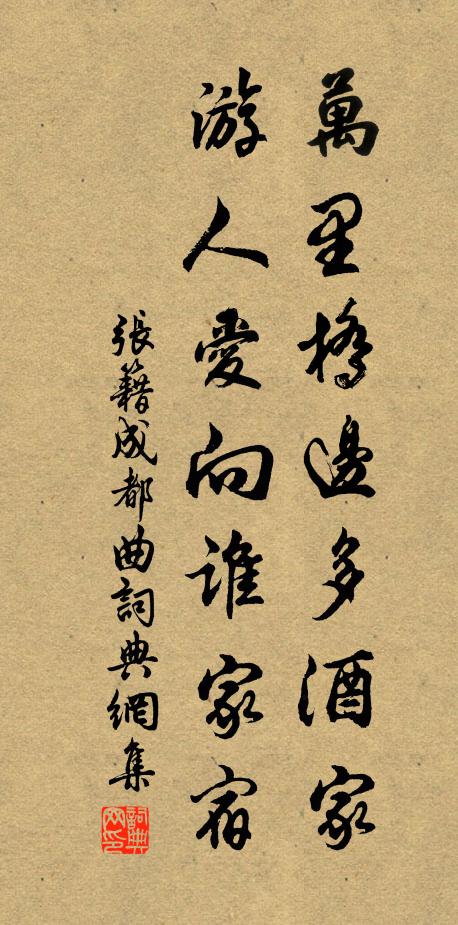 萬里橋邊多酒家
游人愛向誰家宿
張籍成都曲詞典網集
詞典網印